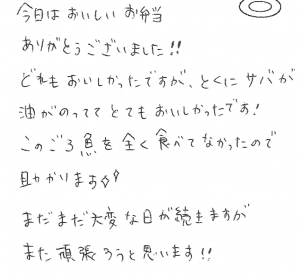 今日はおいしいお弁当
ありがとうございました!!
どれもおいしかったですが、とくにサバが
油がのっててとてもおいしかったです!
このごろ魚を全く食べてなかったので
助かります
まだまだ大変な日が続きますが
また頑張ろうと思います!!